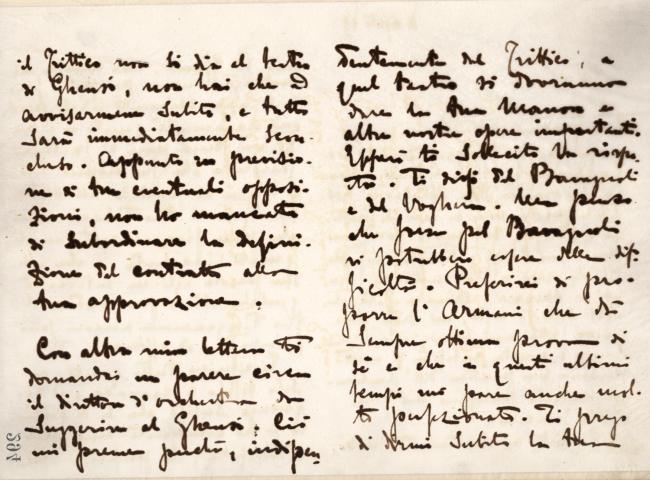 il Trittico non si dia al teatro
di Gheusi, non hai che ad
avvisarmene subito, e tutto
sarà immediatamente scon-
cluso. Appunto in previsio-
ne di tue eventuali opposi-
zioni, non ho mancato
di subordinare la defini-
zione del contratto alla
tua approvazione.
Con altra mia lettera Ti
domandai un parere circa
il direttore d'orchestra da
suggerire al Gheusi. Ciò
mi preme perchè, indipen-
dentemente dal Trittico, a
quel teatro si dovranno
dare la tua Manon e
altre nostre opere importanti.
Epperò ti sollecito la rispo-
sta. Ti dissi del Bavagnoli
e del Vogh. Ma penso
che forse pel Bavagnoli
vi potrebbero essere delle dif-
ficoltà. Preferirei di pro-
porre l'Armani che dà
sempre ottima prova di
sè e che in questi ultimi
tempi mi pare anche mol-
to perfezionato. Ti prego
di dirmi subito la tua
294